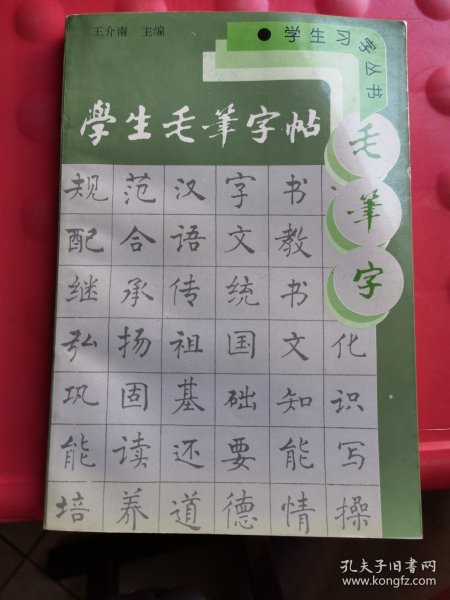 王介南 主编
●学生习字丛书
學生毛筆字帖
毛筆字
规范汉字书
配合语文教
继承传统书
弘扬祖国文化
巩固基础知识
能读还要能写
培养道德情操
孔夫子旧书网
www.kongfz.com